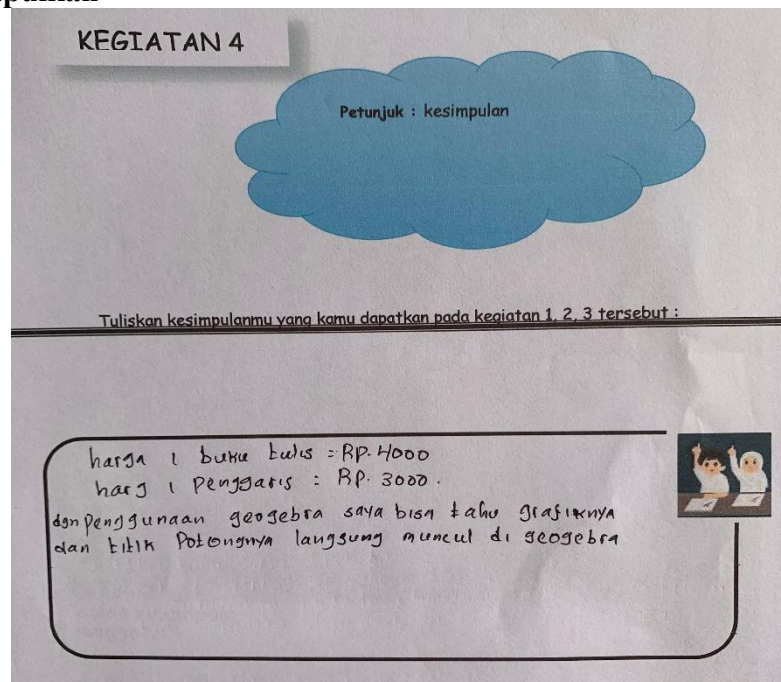 KEGIATAN 4
Petunjuk : kesimpulan
Tuliskan kesimpulanmu yang kamu dapatkan pada kegiatan 1, 2, 3 tersebut :
harga 1 buku tulis = RP. 4000
harg 1 Penggaris : RP. 3000.
dgn Penggunaan geogebra saya bisa tahu grafiknya
dan titik Potongnya langsung muncul di geogebra